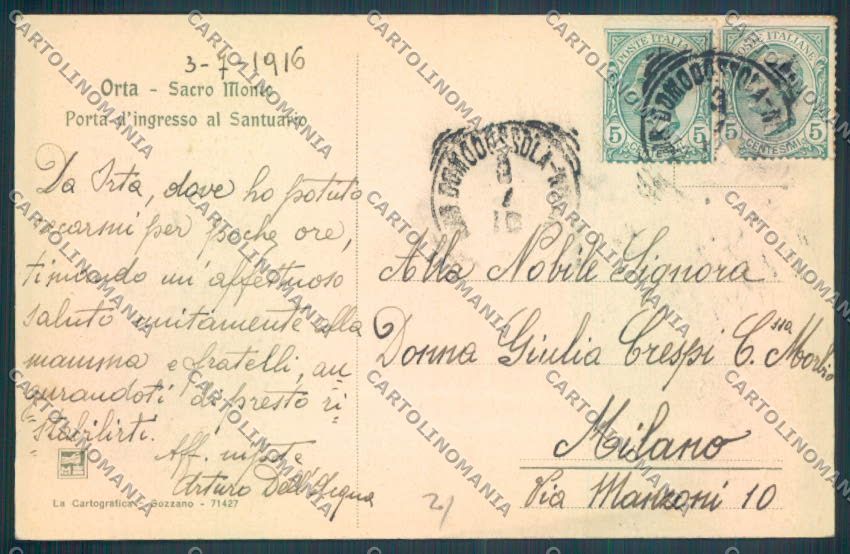 3-7-1916
Orta - Sacro Monte
Porta d'ingresso al Santuario
Da Orta, dove ho potuto
recarmi per poche ore,
ti mando un affettuoso
saluto unitamente alla
mamma e fratelli, au-
gurandoti di presto ri-
stabilirti.
Aff. nipote
Arturo Dell'Acqua
La Cartografica - Gozzano - 71427
POSTE ITALIANE
5 CENTESIMI 5
POSTE ITALIANE
5 CENTESIMI 5
DOMODOSSOLA-N
DOMODOSSOLA-N
Alla Nobile Signora
Donna Giulia Crespi C.ssa Morbio
Milano
Via Manzoni 10
2/
CARTOLINOMANIA